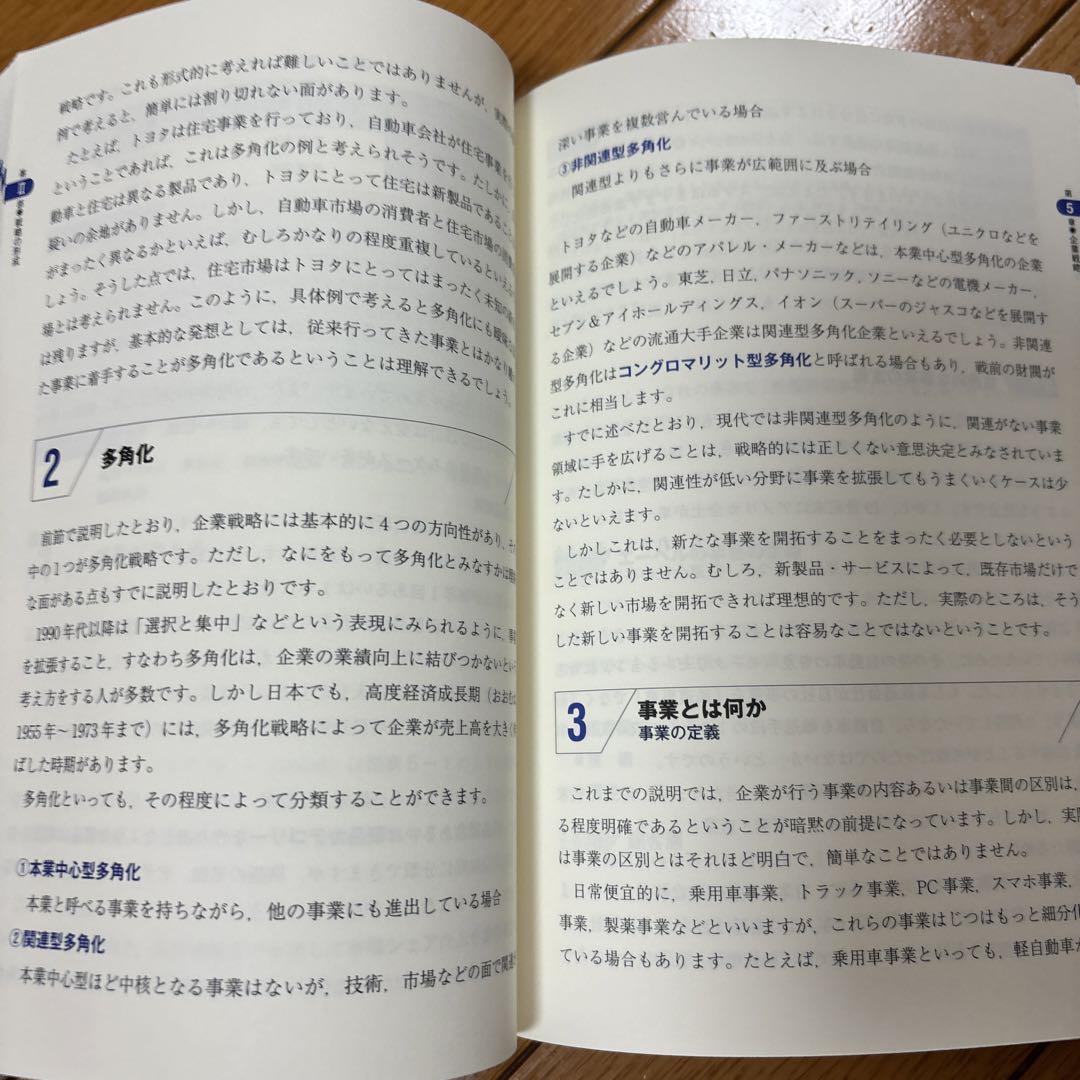 戦略です。これも形式的に考えれば難しいことではありませんが，実際の
例で考えると，簡単には割り切れない面があります。
たとえば，トヨタは住宅事業を行っており，自動車会社が住宅事業を
ということであれば，これは多角化の例と考えられそうです。たしかに，
動車と住宅は異なる製品であり，トヨタにとって住宅は新製品であること
疑いの余地がありません。しかし，自動車市場の消費者と住宅市場の消費
がまったく異なるかといえば，むしろかなりの程度重複しているといえる
しょう。そうした点では，住宅市場はトヨタにとってはまったく未知の
場とは考えられません。このように，具体例で考えると多角化にも曖昧
は残りますが，基本的な発想としては，従来行ってきた事業とはかなり
た事業に着手することが多角化であるということは理解できるでしょう。
第 II 部◆戦略の形成
2 多角化
前節で説明したとおり，企業戦略には基本的に4つの方向性があり，その
中の1つが多角化戦略です。ただし，なにをもって多角化とみなすかは
な面がある点もすでに説明したとおりです。
1990年代以降は「選択と集中」などという表現にみられるように，事業
を拡張すること，すなわち多角化は，企業の業績向上に結びつかないという
考え方をする人が多数です。しかし日本でも，高度経済成長期（おおむね
1955年～1973年まで）には，多角化戦略によって企業が売上高を大きく
ばした時期があります。
多角化といっても，その程度によって分類することができます。
①本業中心型多角化
本業と呼べる事業を持ちながら，他の事業にも進出している場合
②関連型多角化
本業中心型ほど中核となる事業はないが，技術，市場などの面で関連
深い事業を複数営んでいる場合
③非関連型多角化
関連型よりもさらに事業が広範囲に及ぶ場合
第 5 章◆企業戦略
トヨタなどの自動車メーカー，ファーストリテイリング（ユニクロなどを
展開する企業）などのアパレル・メーカーなどは，本業中心型多角化の企業
といえるでしょう。東芝，日立，パナソニック，ソニーなどの電機メーカー，
セブン＆アイホールディングス，イオン（スーパーのジャスコなどを展開す
る企業）などの流通大手企業は関連型多角化企業といえるでしょう。非関連
型多角化はコングロマリット型多角化と呼ばれる場合もあり，戦前の財閥が
これに相当します。
すでに述べたとおり，現代では非関連型多角化のように，関連がない事業
領域に手を広げることは，戦略的には正しくない意思決定とみなされていま
す。たしかに，関連性が低い分野に事業を拡張してもうまくいくケースは少
ないといえます。
しかしこれは，新たな事業を開拓することをまったく必要としないという
ことではありません。むしろ，新製品・サービスによって，既存市場だけで
なく新しい市場を開拓できれば理想的です。ただし，実際のところは，そう
した新しい事業を開拓することは容易なことではないということです。
3 事業とは何か
事業の定義
これまでの説明では，企業が行う事業の内容あるいは事業間の区別は，
る程度明確であるということが暗黙の前提になっています。しかし，実際
は事業の区別とはそれほど明白で，簡単なことではありません。
日常便宜的に，乗用車事業，トラック事業，PC事業，スマホ事業，
事業，製薬事業などといいますが，これらの事業はじつはもっと細分化
ている場合もあります。たとえば，乗用車事業といっても，軽自動車